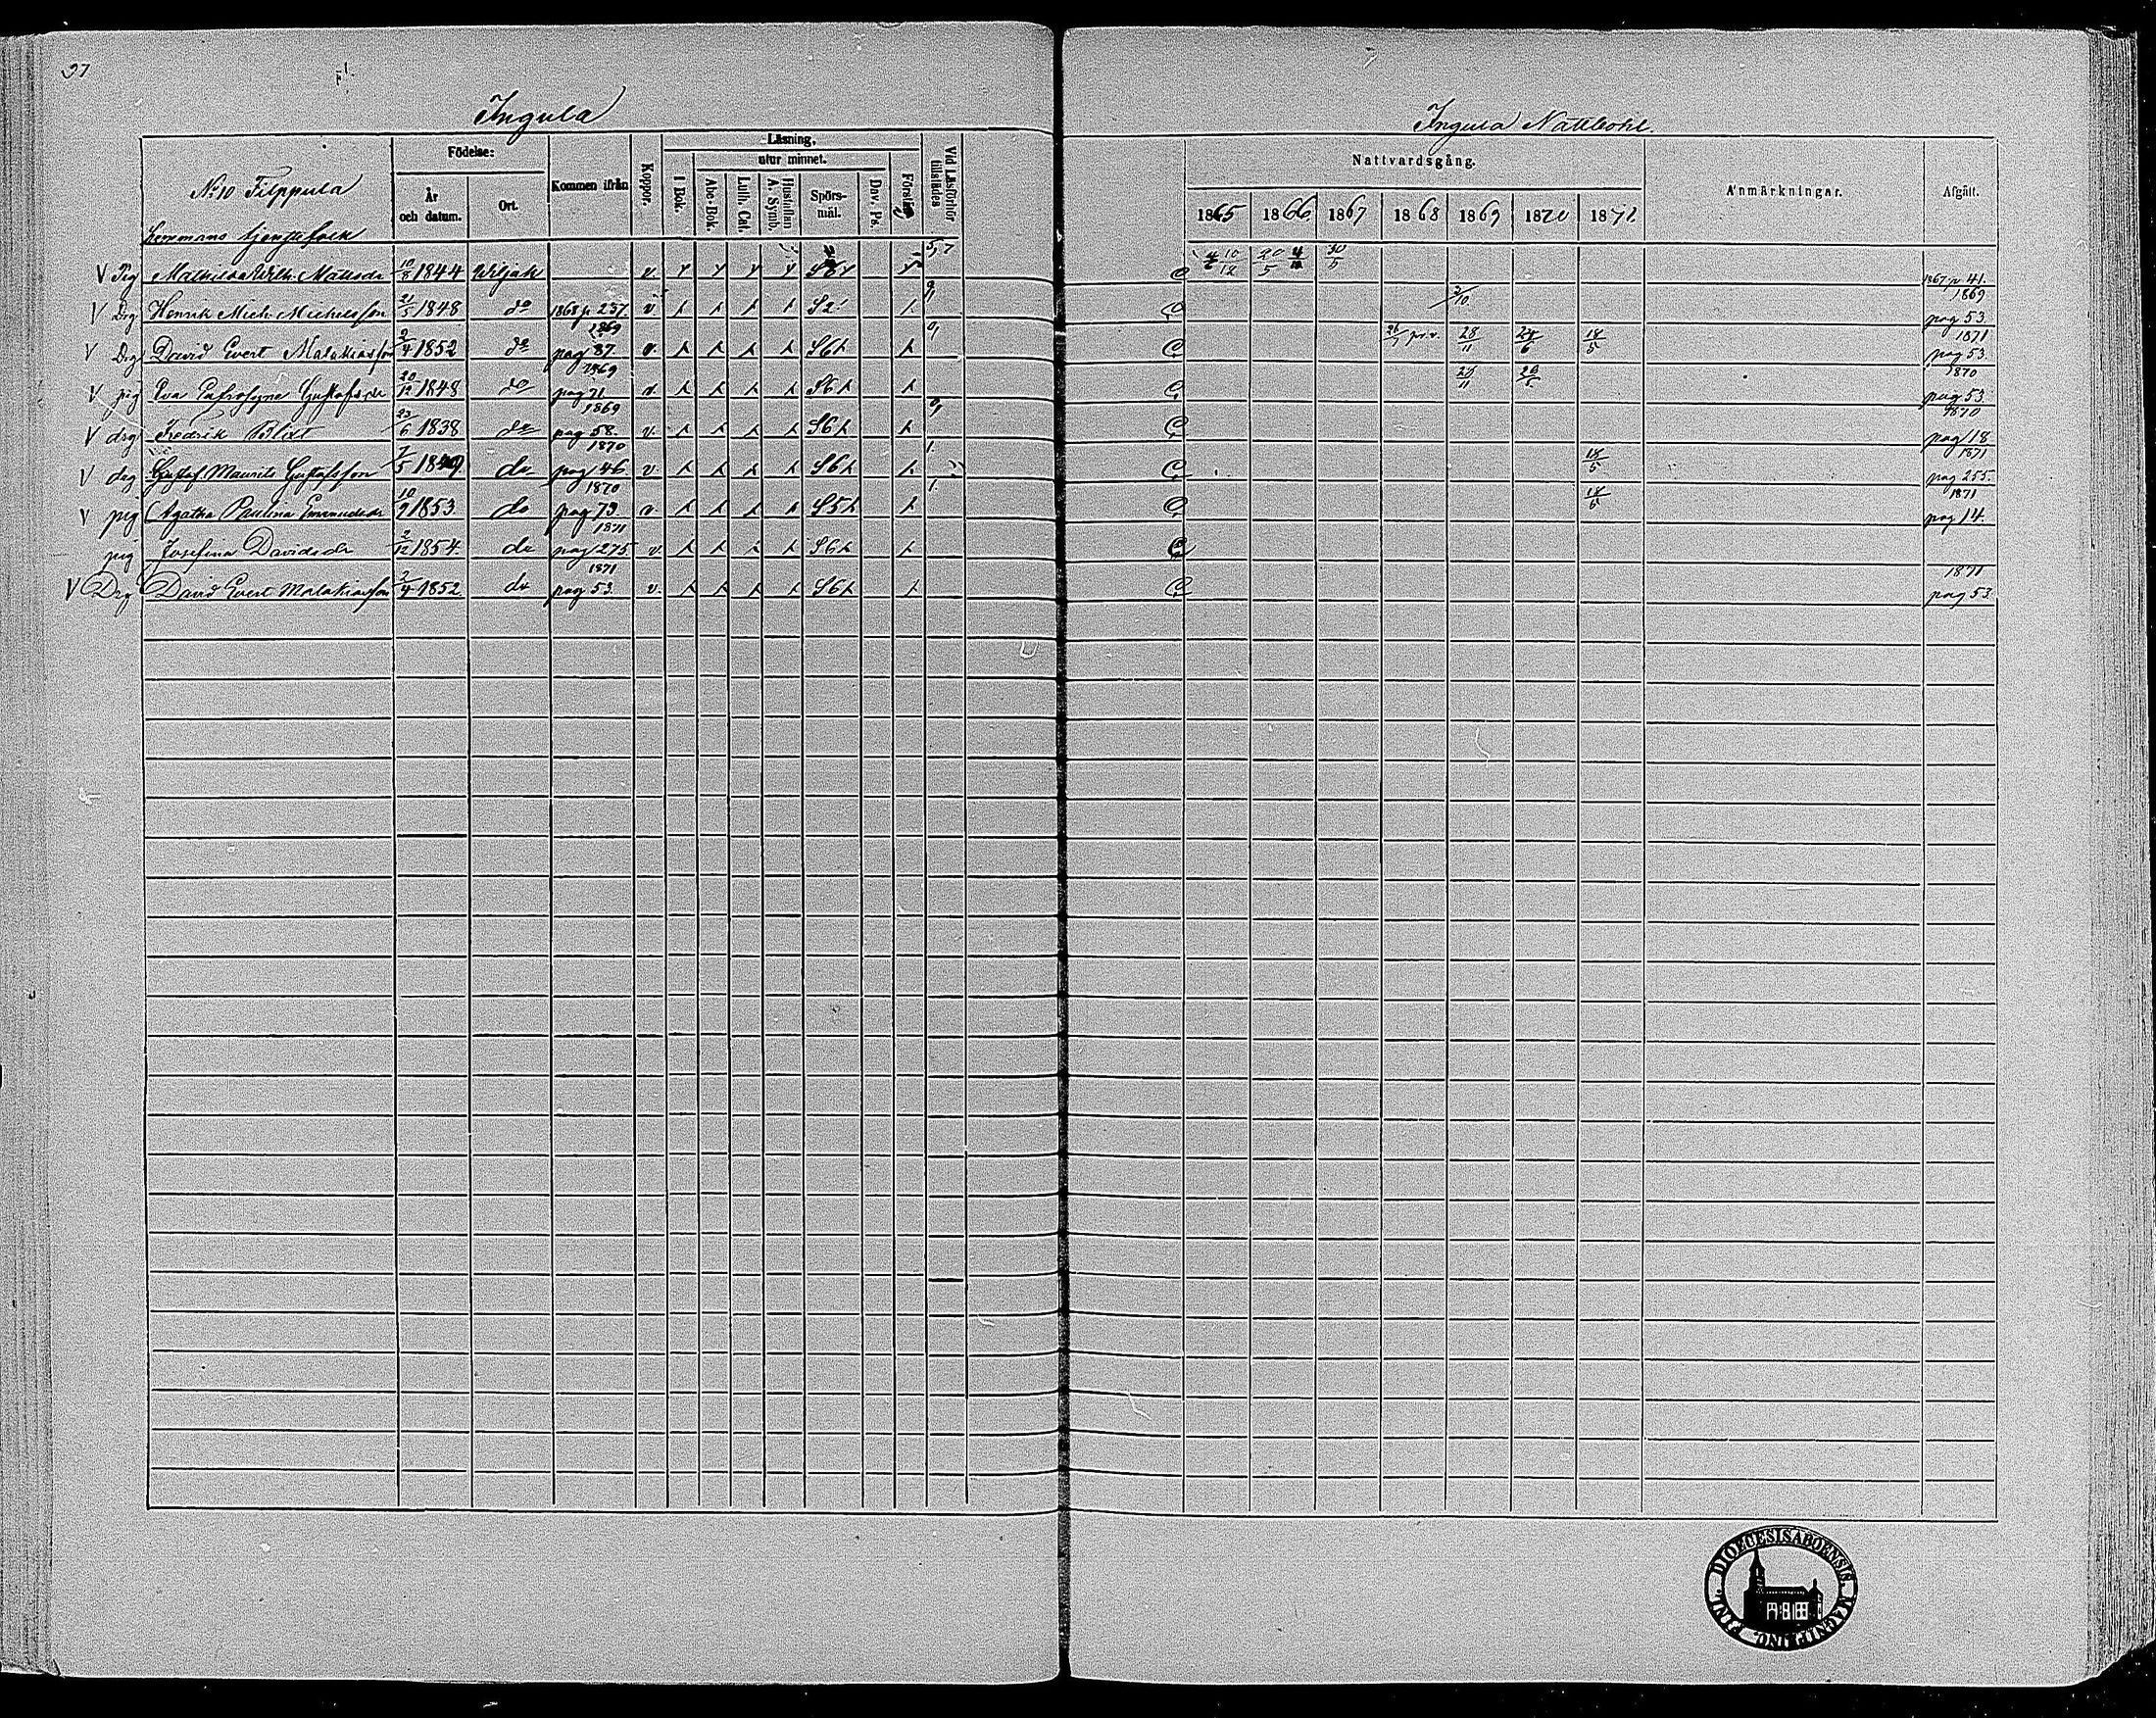 37
Ingula
Ingula Nattbohl.
Födelse: Läsning,
utur minnet.
Nattvardsgång.
No 10 Filppula År och datum. Ort. Kommen ifrån Koppor. I Bok. Abc-Bok. Luth. Cat. Hustaflan A. Symb. Spörs-mål. Dav. Ps. Förstånd Vid Läsförhör tillstädes 1865 1866 1867 1868 1869 1870 1871 Anmärkningar. Afgått.
Hemmans tjenstefolk
V Pig Mathilda Wilh. Mattsdr 10/8 1844 Wiljak v 5,7 10/12 20/5 30/5 1867 p 41.
V Drg Henrik Mich. Michelsson 21/5 1848 do 1868 p 257. v S2 3/10 1869 pag 53.
V Drg David Evert Malakiasson 2/4 1852 do 1869 pag 87. v. S6 28/11 24/6 18/5 1871 pag 53.
V pig Eva Gustafsdr 20/12 1848 do 1869 pag 71 v. S6 1870 pag 53.
V drg Fredrik Blixt 23/6 1838 do 1869 pag 58. v. S6 1870 pag 18
V drg Gustaf Maurits Gustafsson 7/5 1849 do 1870 pag 46. v. S6 1. 18/5 1871 pag 255.
V pig Agatha Paulina Emanuelsdr 10/9 1853 do 1870 pag 79. v. S5 1. 18/5 1871 pag 14.
pig Josefina Davidsdr 2/12 1854. do 1871 pag 275 v. S6
V Drg David Evert Malakiasson 2/4 1852 do 1871 pag 53. v. S6 1871 pag 53.
DIOECESIS ABOENSIS. MAGNI PRINC. FINL.